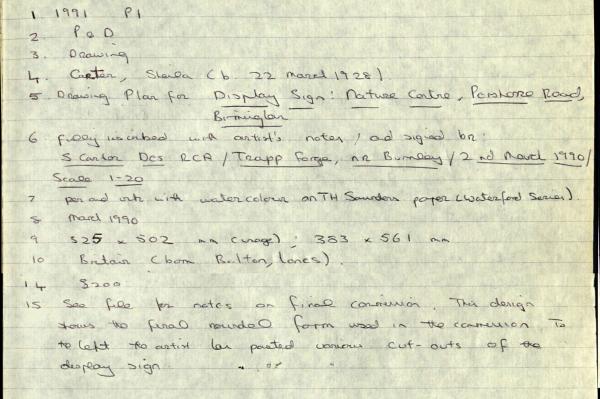 1 1991 P1
2 P & D
3. Drawing
4. Carter, Sheila (b. 22 March 1928)
5 Drawing Plan for Display Sign: Nature Centre, Pershore Road,
Birmingham
6 fully inscribed with artist's notes / and signed br:
S Carter Des RCA / Trapp Forge, nr Burnley / 2nd March 1990/
Scale 1-20
7 pen and ink with watercolour on TH Saunders paper (Waterford Series).
8 March 1990
9 525 x 502 mm (image); 383 x 561 mm
10 Britain (born Bolton, Lancs).
14 $200
15 See file for notes on final commission. This design
shows the final rounded form used in the commission. To
the left the artist has pasted various cut-outs of the
display sign.